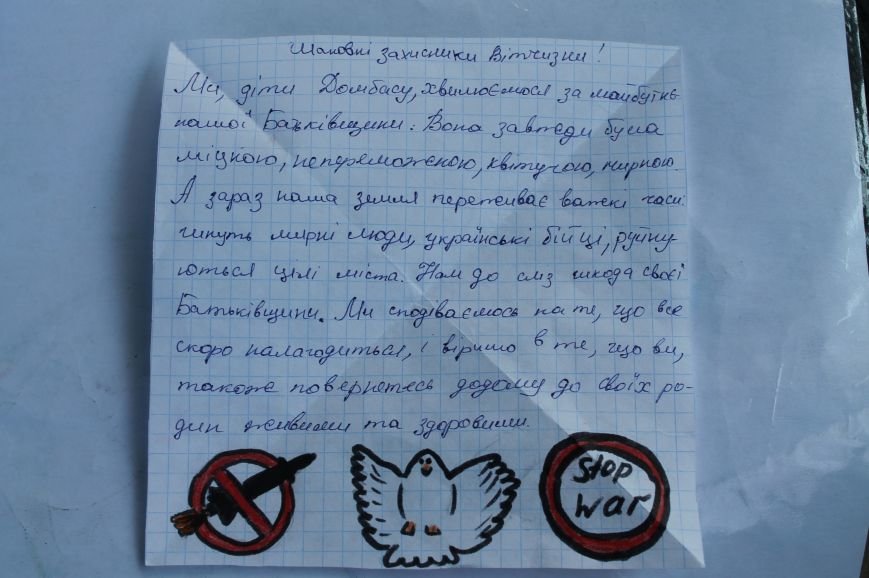 Шановні захисники Вітчизни!
Ми, діти Домбасу, хвилюємося за майбутнє
нашої Батьківщини. Вона завжди була
міцною, непереможеною, квітучою, мирною.
А зараз наша земля переживає важкі часи:
гинуть мирні люди, українські бійці, руйну-
ються цілі міста. Нам до сліз шкода своєї
Батьківщини. Ми сподіваємось на те, що все
скоро налагодиться, і віримо в те, що ви,
також повернетесь додому до своїх ро-
дин живими та здоровими.
Stop
war